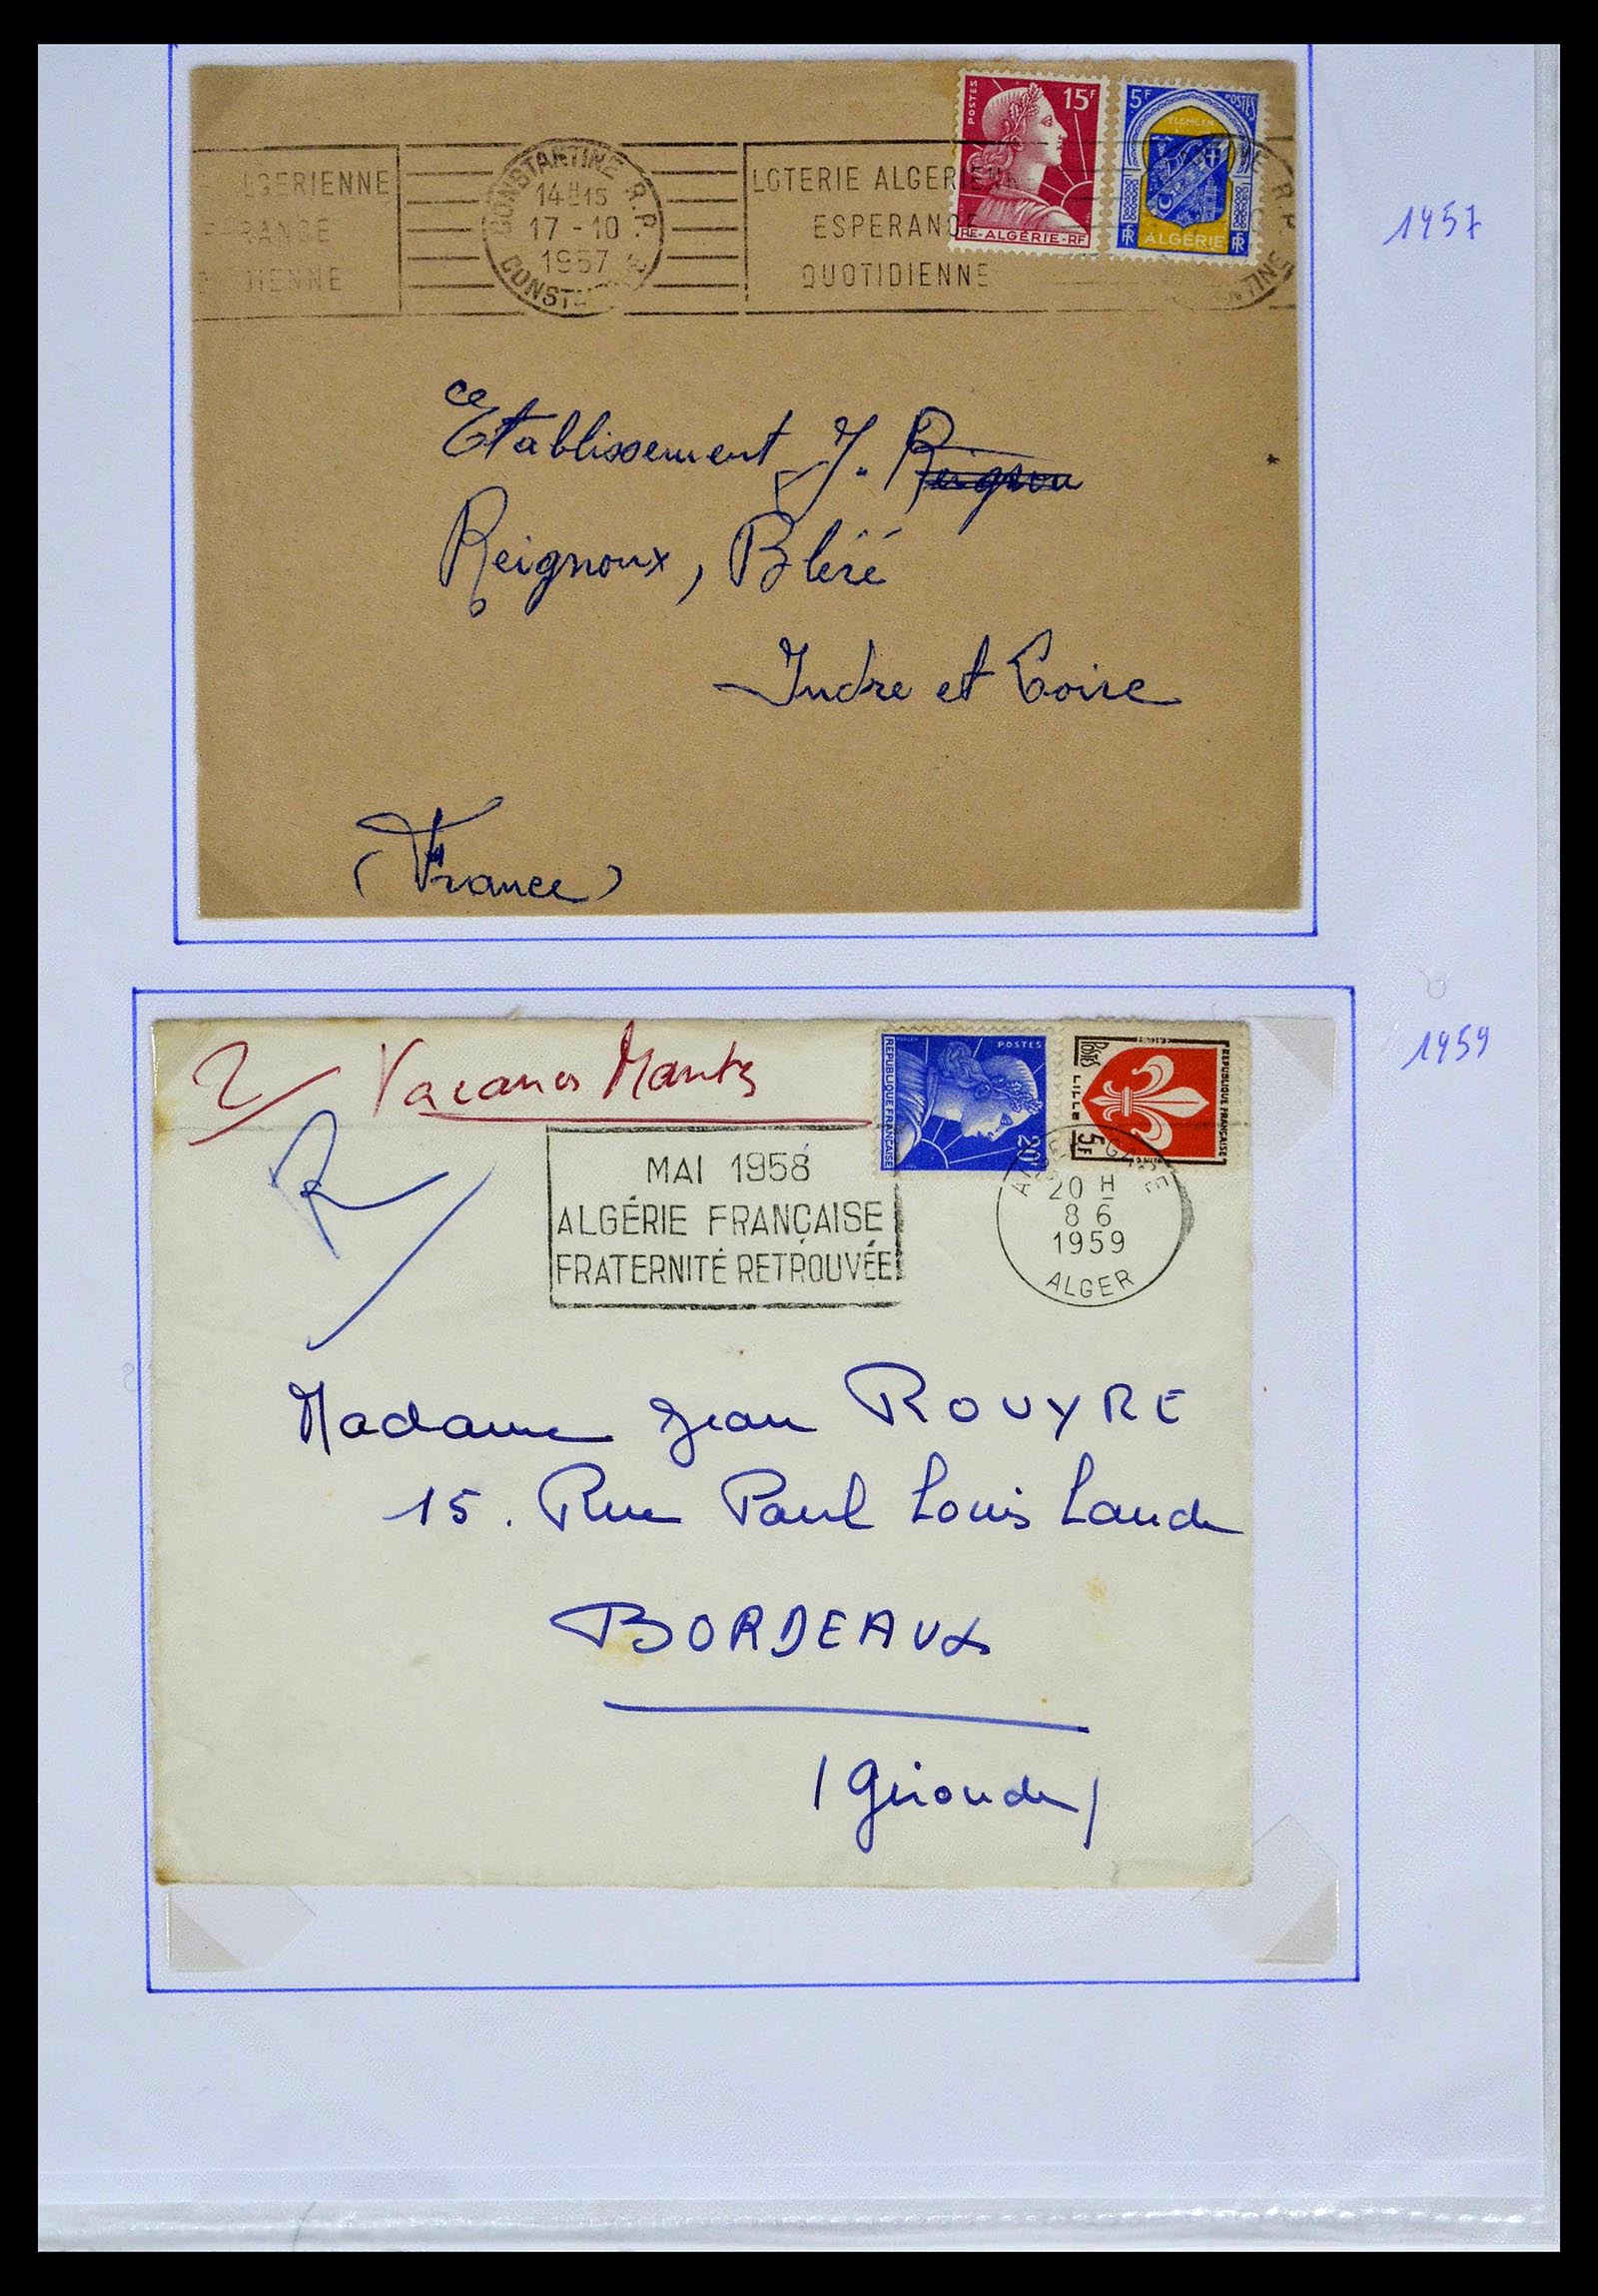 LGERIENNE
RANCE
DIENNE
CONSTANTINE R.P.
14H15
17 - 10
1957
CONST
LOTERIE ALGERIENNE
ESPERANCE
QUOTIDIENNE
POSTES
15F
RF-ALGÉRIE-RF
5F POSTES
TLEMCEN
RF ALGÉRIE RF
1957
ce
Etablissement J. Reignou
Reignoux, Bléré
Indre et Loire
(France)
1959
2/ Vacances
R/
POSTES
REPUBLIQUE FRANÇAISE
20F
POSTES
LILLE
5F
REPUBLIQUE FRANÇAISE
MAI 1958
ALGÉRIE FRANÇAISE
FRATERNITÉ RETROUVÉE
ALGER GARE
20 H
8 6
1959
ALGER
Madame Jean ROUYRE
15. Rue Paul Louis Lande
BORDEAUX
/Gironde/